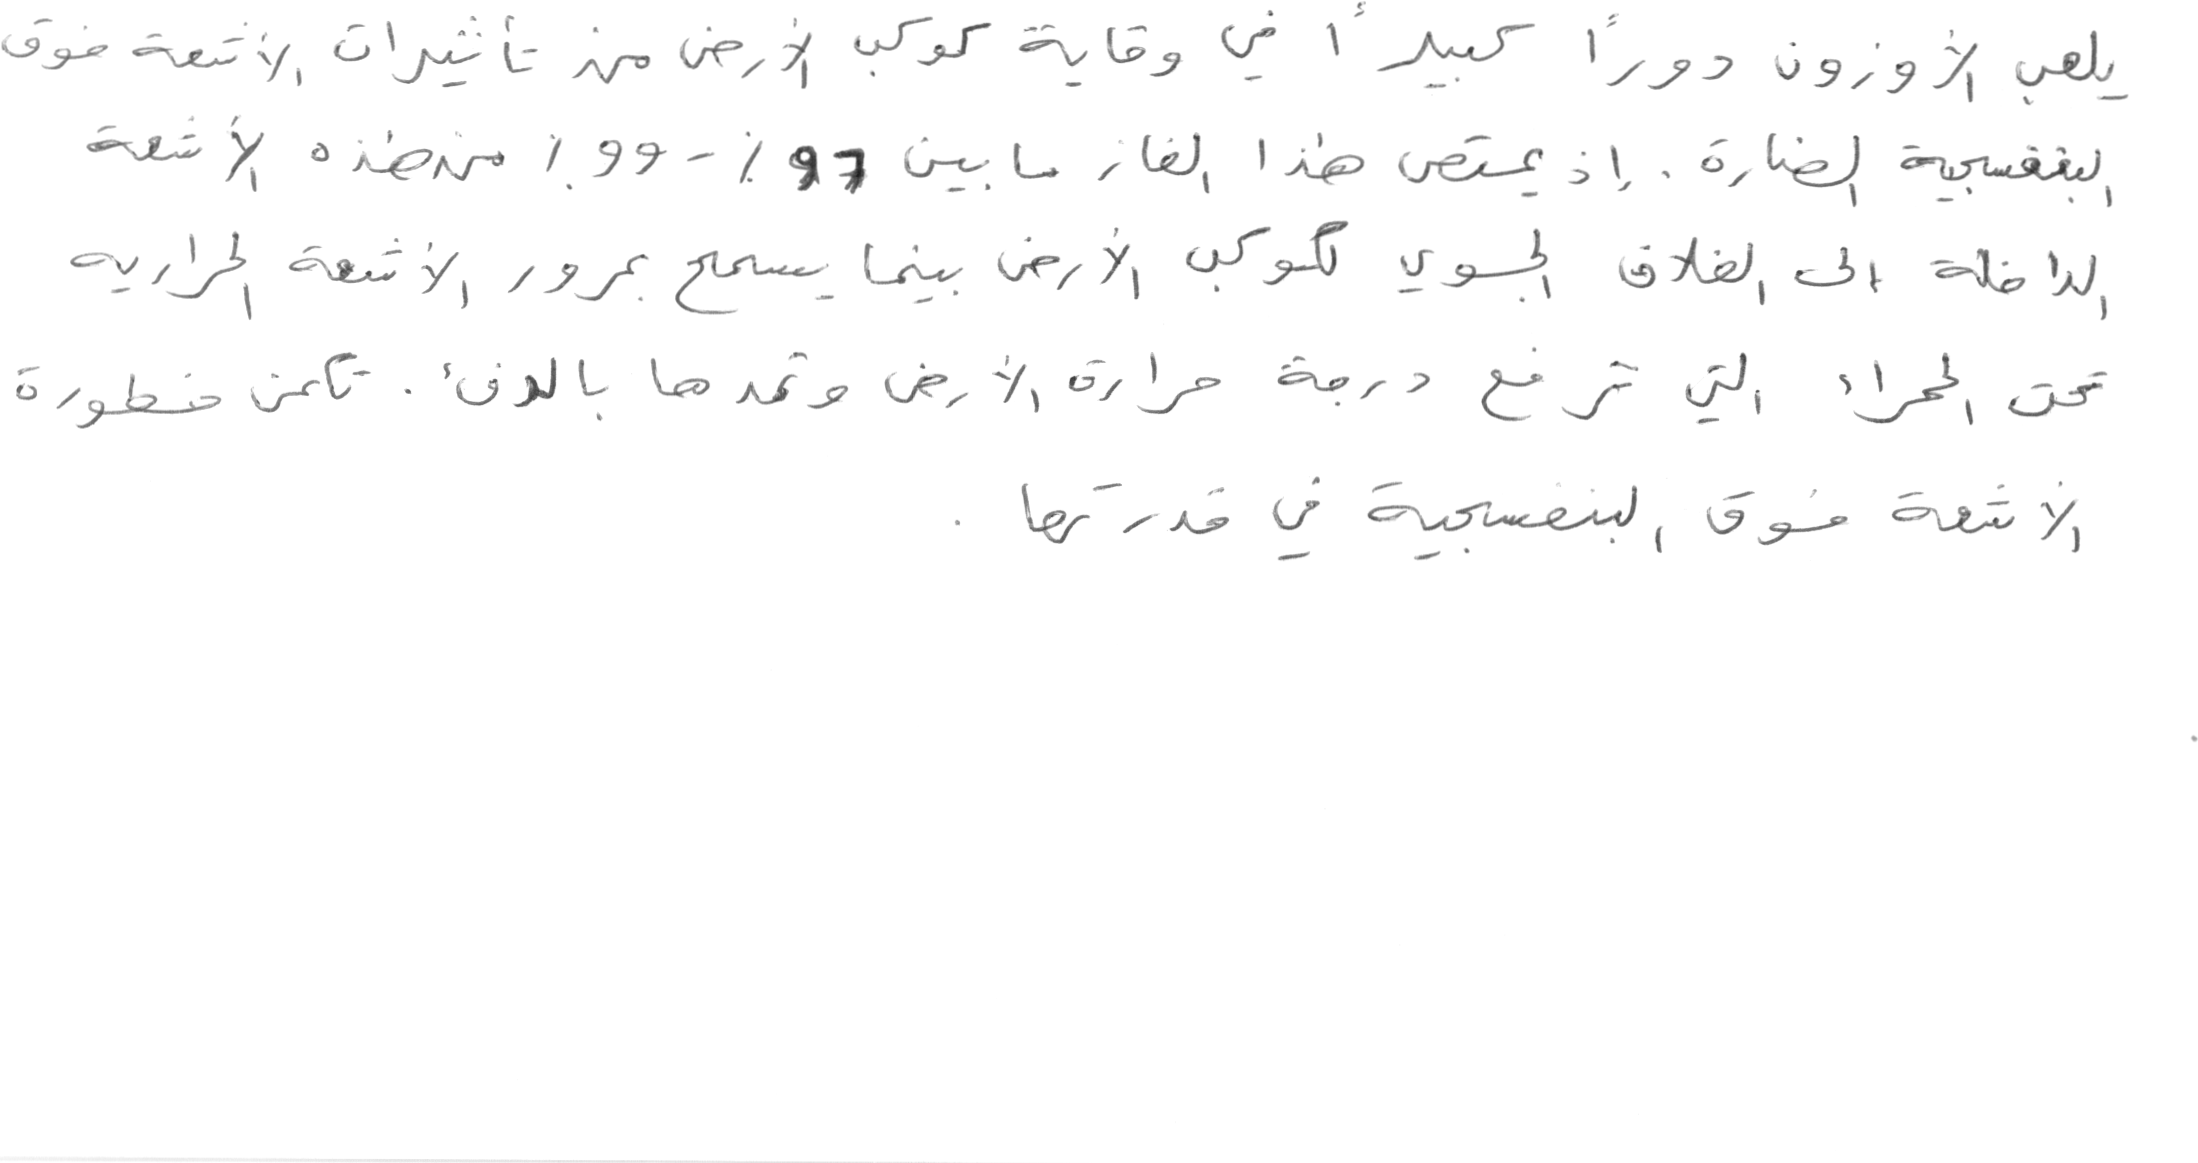 يلعب الأوزون دورًا كبيرًا في وقاية كوكب الأرض من تأثيرات الأشعة فوق
البنفسجية الضارة . إذ يمتص هذا الغاز ما بين 97٪ - 99٪ من هذه الأشعة
الداخلة إلى الغلاف الجوي لكوكب الأرض بينما يسمح بمرور الأشعة الحراريه
تحت الحمراء التي ترفع درجة حرارة الأرض وتمدها بالدفئ . تكمن خطورة
الأشعة فوق البنفسجية في قدرتها .